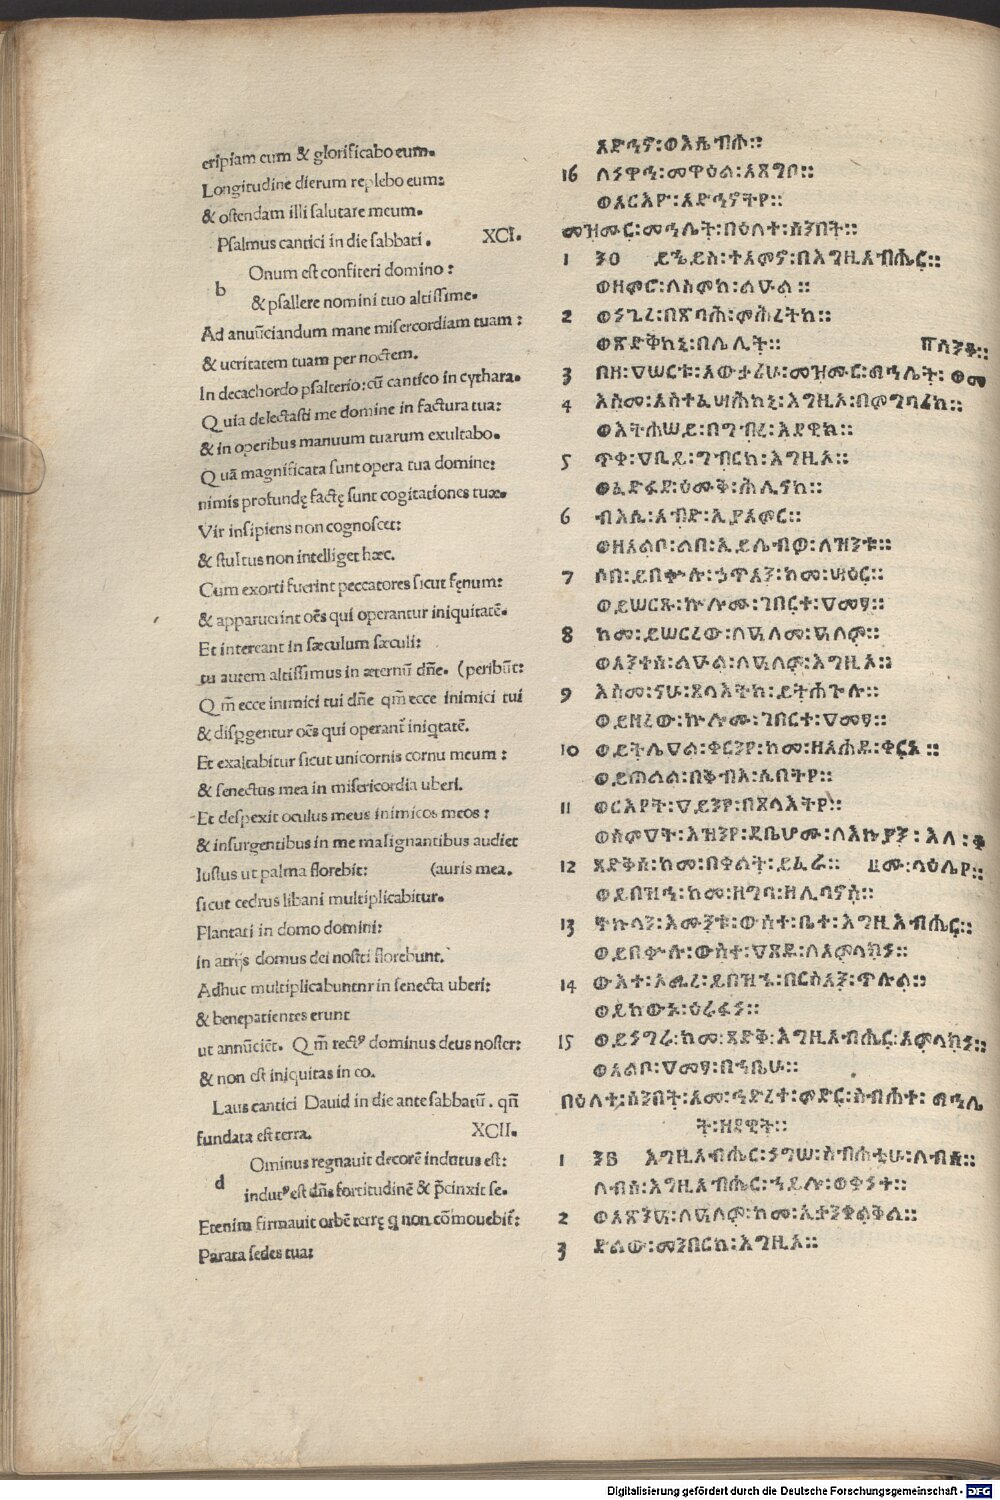 eripiam eum & glorificabo eum.
Longitudine dierum replebo eum:
& ostendam illi salutare meum.
Psalmus cantici in die sabbati. XCI.
bOnum est confiteri domino:
& psallere nomini tuo altissime.
Ad anuũciandum mane misercordiam tuam:
& ueritatem tuam per noctem.
In decachordo psalterio: cũ cantico in cythara.
Quia delectasti me domine in factura tua:
& in operibus manuum tuarum exultabo.
Quã magnificata sunt opera tua domine:
nimis profundę factę sunt cogitationes tuæ.
Vir insipiens non cognoscet:
& stultus non intelliget hæc.
Cum exorti fuerint peccatores sicut fęnum:
& apparuerint oẽs qui operantur iniquitatẽ.
Et intereant in sæculum sæculi:
tu autem altissimus in æternũ dñe. (peribũt:
Qm̃ ecce inimici tui dñe qm̃ ecce inimici tui
& dispgentur oẽs qui operant̃ iniqtatẽ.
Et exaltabitur sicut unicornis cornu meum:
& senectus mea in misericordia uberi.
Et despexit oculus meus inimicos meos:
& insurgentibus in me malignantibus audiet
Iustus ut palma florebit: (auris mea.
sicut cedrus libani multiplicabitur.
Plantati in domo domini:
in atrijs domus dei nostri florebunt.
Adhuc multiplicabuntnr in senecta uberi:
& benepatientes erunt
ut annũciẽt. Qm̃ rectꝰ dominus deus noster:
& non est iniquitas in eo.
Laus cantici Dauid in die ante sabbatũ. qñ
fundata est terra. XCII.
dOminus regnauit decorẽ indutus est:
indutꝰ est dñs fortitudinẽ & p̃cinxit se.
Etenim firmauit orbẽ terrę q non cõmouebit̃:
Parata sedes tua:
አድኅኖ፡ወእሴብሖ።
16 ለነዋኅ፡መዋዕል፡አጸግቦ።
ወአርእዮ፡አድኅኖትየ።
መዝሙር፡መኃልይት፡በዕለተ፡ሰንበት።
1 ይኄይስ፡ተአምኖ፡በእግዚአብሔር።
ወዘምሮ፡ለስምከ፡ልዑል።
2 ወነጊረ፡በጽባሕ፡ምሕረትከ።
ወጽድቅከኒ፡በሌሊት። ሰንቆ።
3 በዘ፡ዐሠርቱ፡አውታሪሁ፡መዝሙር፡ማኅሌት፡ወመ
4 እስመ፡አስተፈሣሕከኒ፡እግዚአ፡በምግባሪከ።
ወእትሐሠይ፡በግብረ፡እደዊከ።
5 ጥቀ፡ዐቢይ፡ግብርከ፡እግዚአ።
ወፈድፋደ፡ዕሙቅ፡ሕሊናከ።
6 ብእሲ፡አብድ፡ኢያአምር።
ወዘአልቦ፡ልበ፡ኢይሌብዎ፡ለዝንቱ።
7 ሶበ፡ይበቍሉ፡ኃጥአን፡ከመ፡ሣዕር።
ወይሠርጹ፡ኵሎሙ፡ገበርተ፡ዐመፃ።
8 ከመ፡ይሠረዉ፡ለዓለመ፡ዓለም።
ወአንተሰ፡ልዑል፡ለዓለም፡እግዚአ።
9 እስመ፡ናሁ፡ጸላእትከ፡ይትሐጐሉ።
ወይዘረዉ፡ኵሎሙ፡ገበርተ፡ዐመፃ።
10 ወይትሌዐል፡ቀርንየ፡ከመ፡ዘአሐዱ፡ቀርኑ።
ወይጠልል፡በቅብእ፡ሲበትየ።
11 ወርእየት፡ዐይንየ፡በጸላእትየ።
ወሰምዐት፡እዝንየ፡ዲቤሆሙ፡ለእኩያን፡እለ፡ቆ
12 ጻድቅሰ፡ከመ፡በቀልት፡ይፈሪ። ሙ፡ላዕሌየ።
ወይበዝኅ፡ከመ፡ዘግባ፡ዘሊባኖስ።
13 ትኩላን፡እሙንቱ፡ውስተ፡ቤተ፡እግዚአብሔር።
ወይበቍሉ፡ውስተ፡ዐጸዱ፡ለአምላክነ።
14 ውእተ፡አሚረ፡ይበዝኁ፡በርስአን፡ጥሉል።
ወይከውኑ፡ዕሩፋነ።
15 ወይነግሩ፡ከመ፡ጽድቅ፡እግዚአብሔር፡አምላክነ።
ወአልቦ፡ዐመፃ፡በኀቤሁ።
በዕለተ፡ሰንበት፡አመ፡ኀደረት፡ምድር፡ስብሐተ፡ማኅሌ
ት፡ዘዳዊት።
1 እግዚአብሔር፡ነግሠ፡ስብሐቲሁ፡ለብሰ።
ለብሰ፡እግዚአብሔር፡ኃይሎ፡ወቀነተ።
2 ወአጽንዓ፡ለዓለም፡ከመ፡ኢታንቀልቅል።
3 ድልው፡መንበርከ፡እግዚአ።
Digitalisierung gefördert durch die Deutsche Forschungsgemeinschaft - DFG